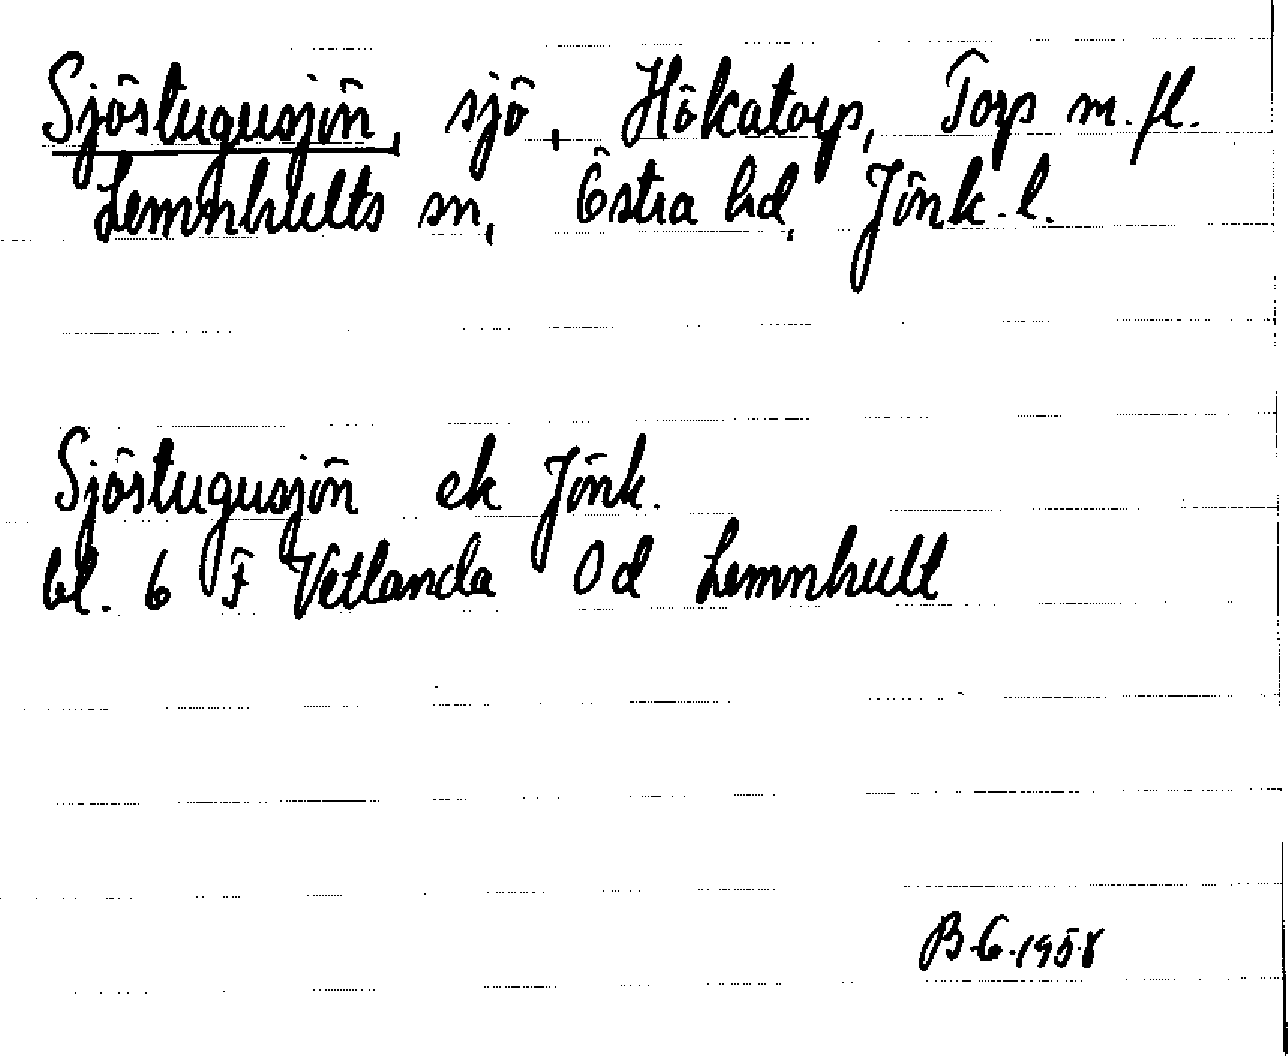 Sjöstugusjön, sjö, Hökatorp, Torp m.fl.
Lemnhults sn, Östra hd, Jönk. l.
Sjöstugusjön ek Jönk.
bl. 6 F Vetlanda 0d Lemnhult
B.G. 1958